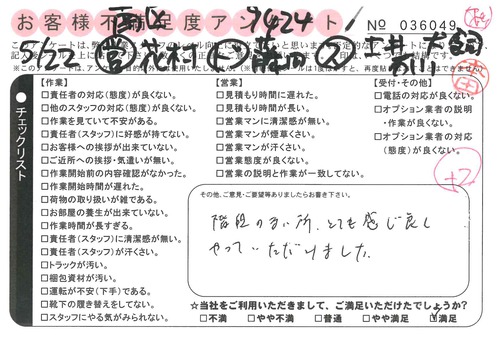 お客様不満足度アンケート
No 036049
5/22
9424
【作業】
□責任者の対応(態度)が良くない。
□他のスタッフの対応(態度)が良くない。
□作業を見ていて不安がある。
□責任者(スタッフ)に好感が持てない。
□お客様への挨拶が出来ていない。
□ご近所への挨拶・気遣いが無い。
□作業開始前の内容確認がなかった。
□作業開始時間が遅れた。
□荷物の取り扱いが雑である。
□お部屋の養生が出来ていない。
□作業時間が長すぎる。
□責任者(スタッフ)に清潔感が無い。
□責任者(スタッフ)が汗くさい。
□トラックが汚い。
□梱包資材が汚い。
□運転が不安(下手)である。
□靴下の履き替えをしてない。
□スタッフにやる気がみられない。
【営業】
□見積もり時間に遅れた。
□見積もり時間が長い。
□営業マンに清潔感が無い。
□営業マンが煙草くさい。
□営業マンが汗くさい。
□営業態度が良くない。
□営業の説明と作業が一致してない。
【受付・その他】
□電話の対応が良くない。
□オプション業者の説明
・作業が良くない。
□オプション業者の対応
(態度)が良くない。
チェックリスト
+2
その他、ご意見・ご要望等ありましたらお書き下さい。
階段の多い所、とても感じ良く
やっていただけました。
☆当社をご利用いただきまして、ご満足いただけたでしょうか?
□不満 □やや不満 □普通 □やや満足 □満足